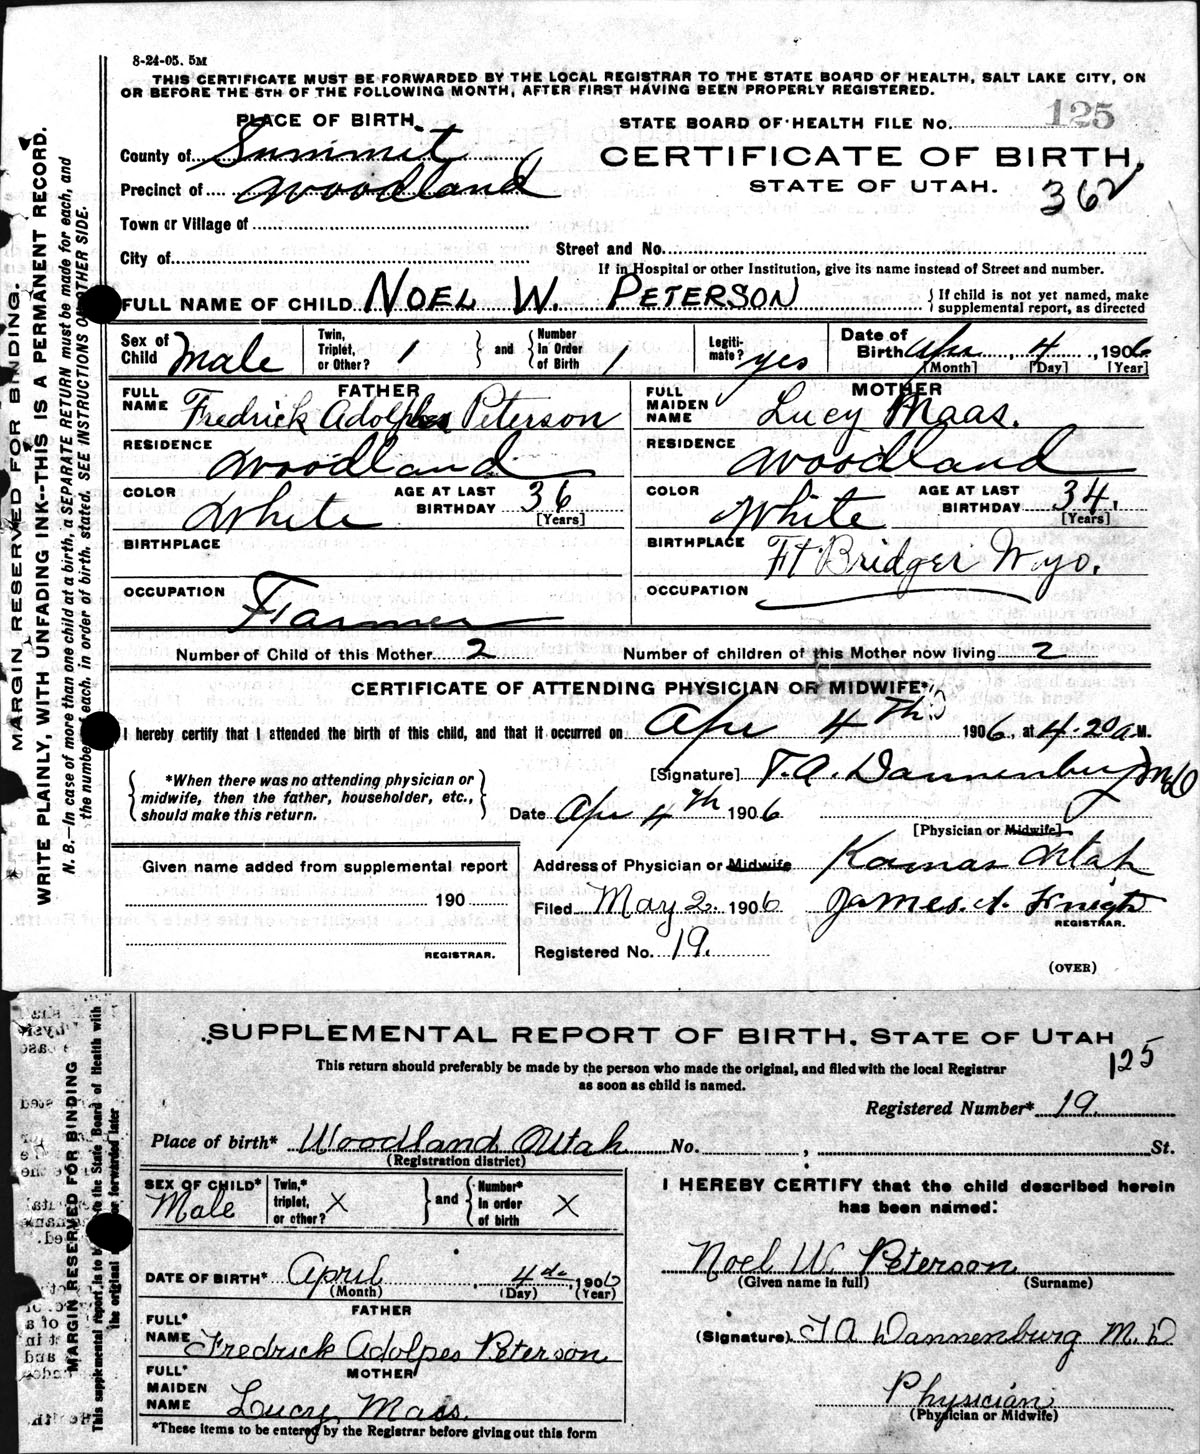 8-24-05. 5M
THIS CERTIFICATE MUST BE FORWARDED BY THE LOCAL REGISTRAR TO THE STATE BOARD OF HEALTH, SALT LAKE CITY, ON
OR BEFORE THE 5TH OF THE FOLLOWING MONTH, AFTER FIRST HAVING BEEN PROPERLY REGISTERED.
PLACE OF BIRTH
STATE BOARD OF HEALTH FILE No. 125
County of Summit
CERTIFICATE OF BIRTH.
Precinct of Woodland
STATE OF UTAH.
362
Town or Village of
City of
Street and No.
If in Hospital or other Institution, give its name instead of Street and number.
FULL NAME OF CHILD NOEL W. PETERSON { If child is not yet named, make
supplemental report, as directed
Sex of Child Male
Twin, Triplet, or Other? 1 } and { Number in Order of Birth 1
Legitimate? yes
Date of Birth Apr 4, 1906
[Month] [Day] [Year]
FATHER
FULL NAME Fredrick Adolpes Peterson
RESIDENCE Woodland
COLOR White AGE AT LAST BIRTHDAY 36 [Years]
BIRTHPLACE
OCCUPATION Farmer
MOTHER
FULL MAIDEN NAME Lucy Maas.
RESIDENCE Woodland
COLOR White AGE AT LAST BIRTHDAY 34, [Years]
BIRTHPLACE Ft Bridger Wyo.
OCCUPATION
Number of Child of this Mother 2 Number of children of this Mother now living 2
CERTIFICATE OF ATTENDING PHYSICIAN OR MIDWIFE*
I hereby certify that I attended the birth of this child, and that it occurred on Apr 4th 1906, at 4.20 a M.
{ *When there was no attending physician or
midwife, then the father, householder, etc.,
should make this return. }
[Signature] T. A. Dannenburg MD
Date Apr 4th 1906
[Physician or Midwife]
Given name added from supplemental report
190
REGISTRAR.
Address of Physician or Midwife Kamas Utah
Filed May 2. 1906 James. A. Knight
REGISTRAR.
Registered No. 19.
(OVER)
MARGIN RESERVED FOR BINDING.
WRITE PLAINLY, WITH UNFADING INK--THIS IS A PERMANENT RECORD.
N. B.—In case of more than one child at a birth, a SEPARATE RETURN must be made for each, and
the number of each, in order of birth, stated. SEE INSTRUCTIONS ON OTHER SIDE.
SUPPLEMENTAL REPORT OF BIRTH, STATE OF UTAH
125
This return should preferably be made by the person who made the original, and filed with the local Registrar
as soon as child is named.
Registered Number* 19
Place of birth* Woodland Utah No. , St.
(Registration district)
SEX OF CHILD* Male
Twin,* triplet, or other? X } and { Number* In order of birth X
DATE OF BIRTH* April 4th 1906
(Month) (Day) (Year)
FATHER
FULL* NAME Fredrick Adolpes Peterson
MOTHER
FULL* MAIDEN NAME Lucy Maas.
*These items to be entered by the Registrar before giving out this form
I HEREBY CERTIFY that the child described herein
has been named:
Noel W. Peterson
(Given name in full) (Surname)
(Signature) T A Dannenburg M.D
Physician
(Physician or Midwife)
MARGIN RESERVED FOR BINDING